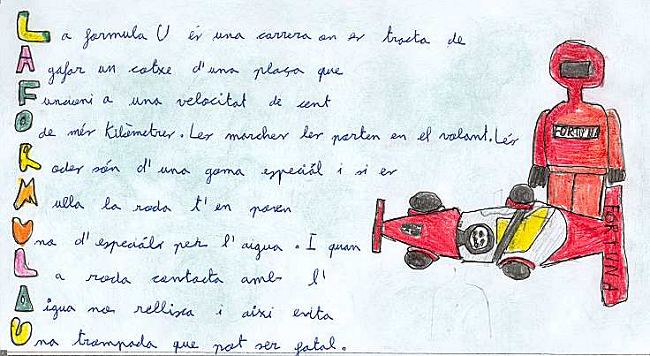 La formula U és una carrera on es tracta de
Agafar un cotxe d'una plaça que
Funcioni a una velocitat de cent
O de més Kilòmetres. Les marches les porten en el volant. Lés
Rodes són d'una goma especiál i si es
Mulla la roda t'en posen
Una d'especiáls per l'aigua. I quan
La roda contacta amb l'
Aigua no rellisca i aixi evita
Una trompada que pot ser fatal.
FORTUNA
FORTUNA